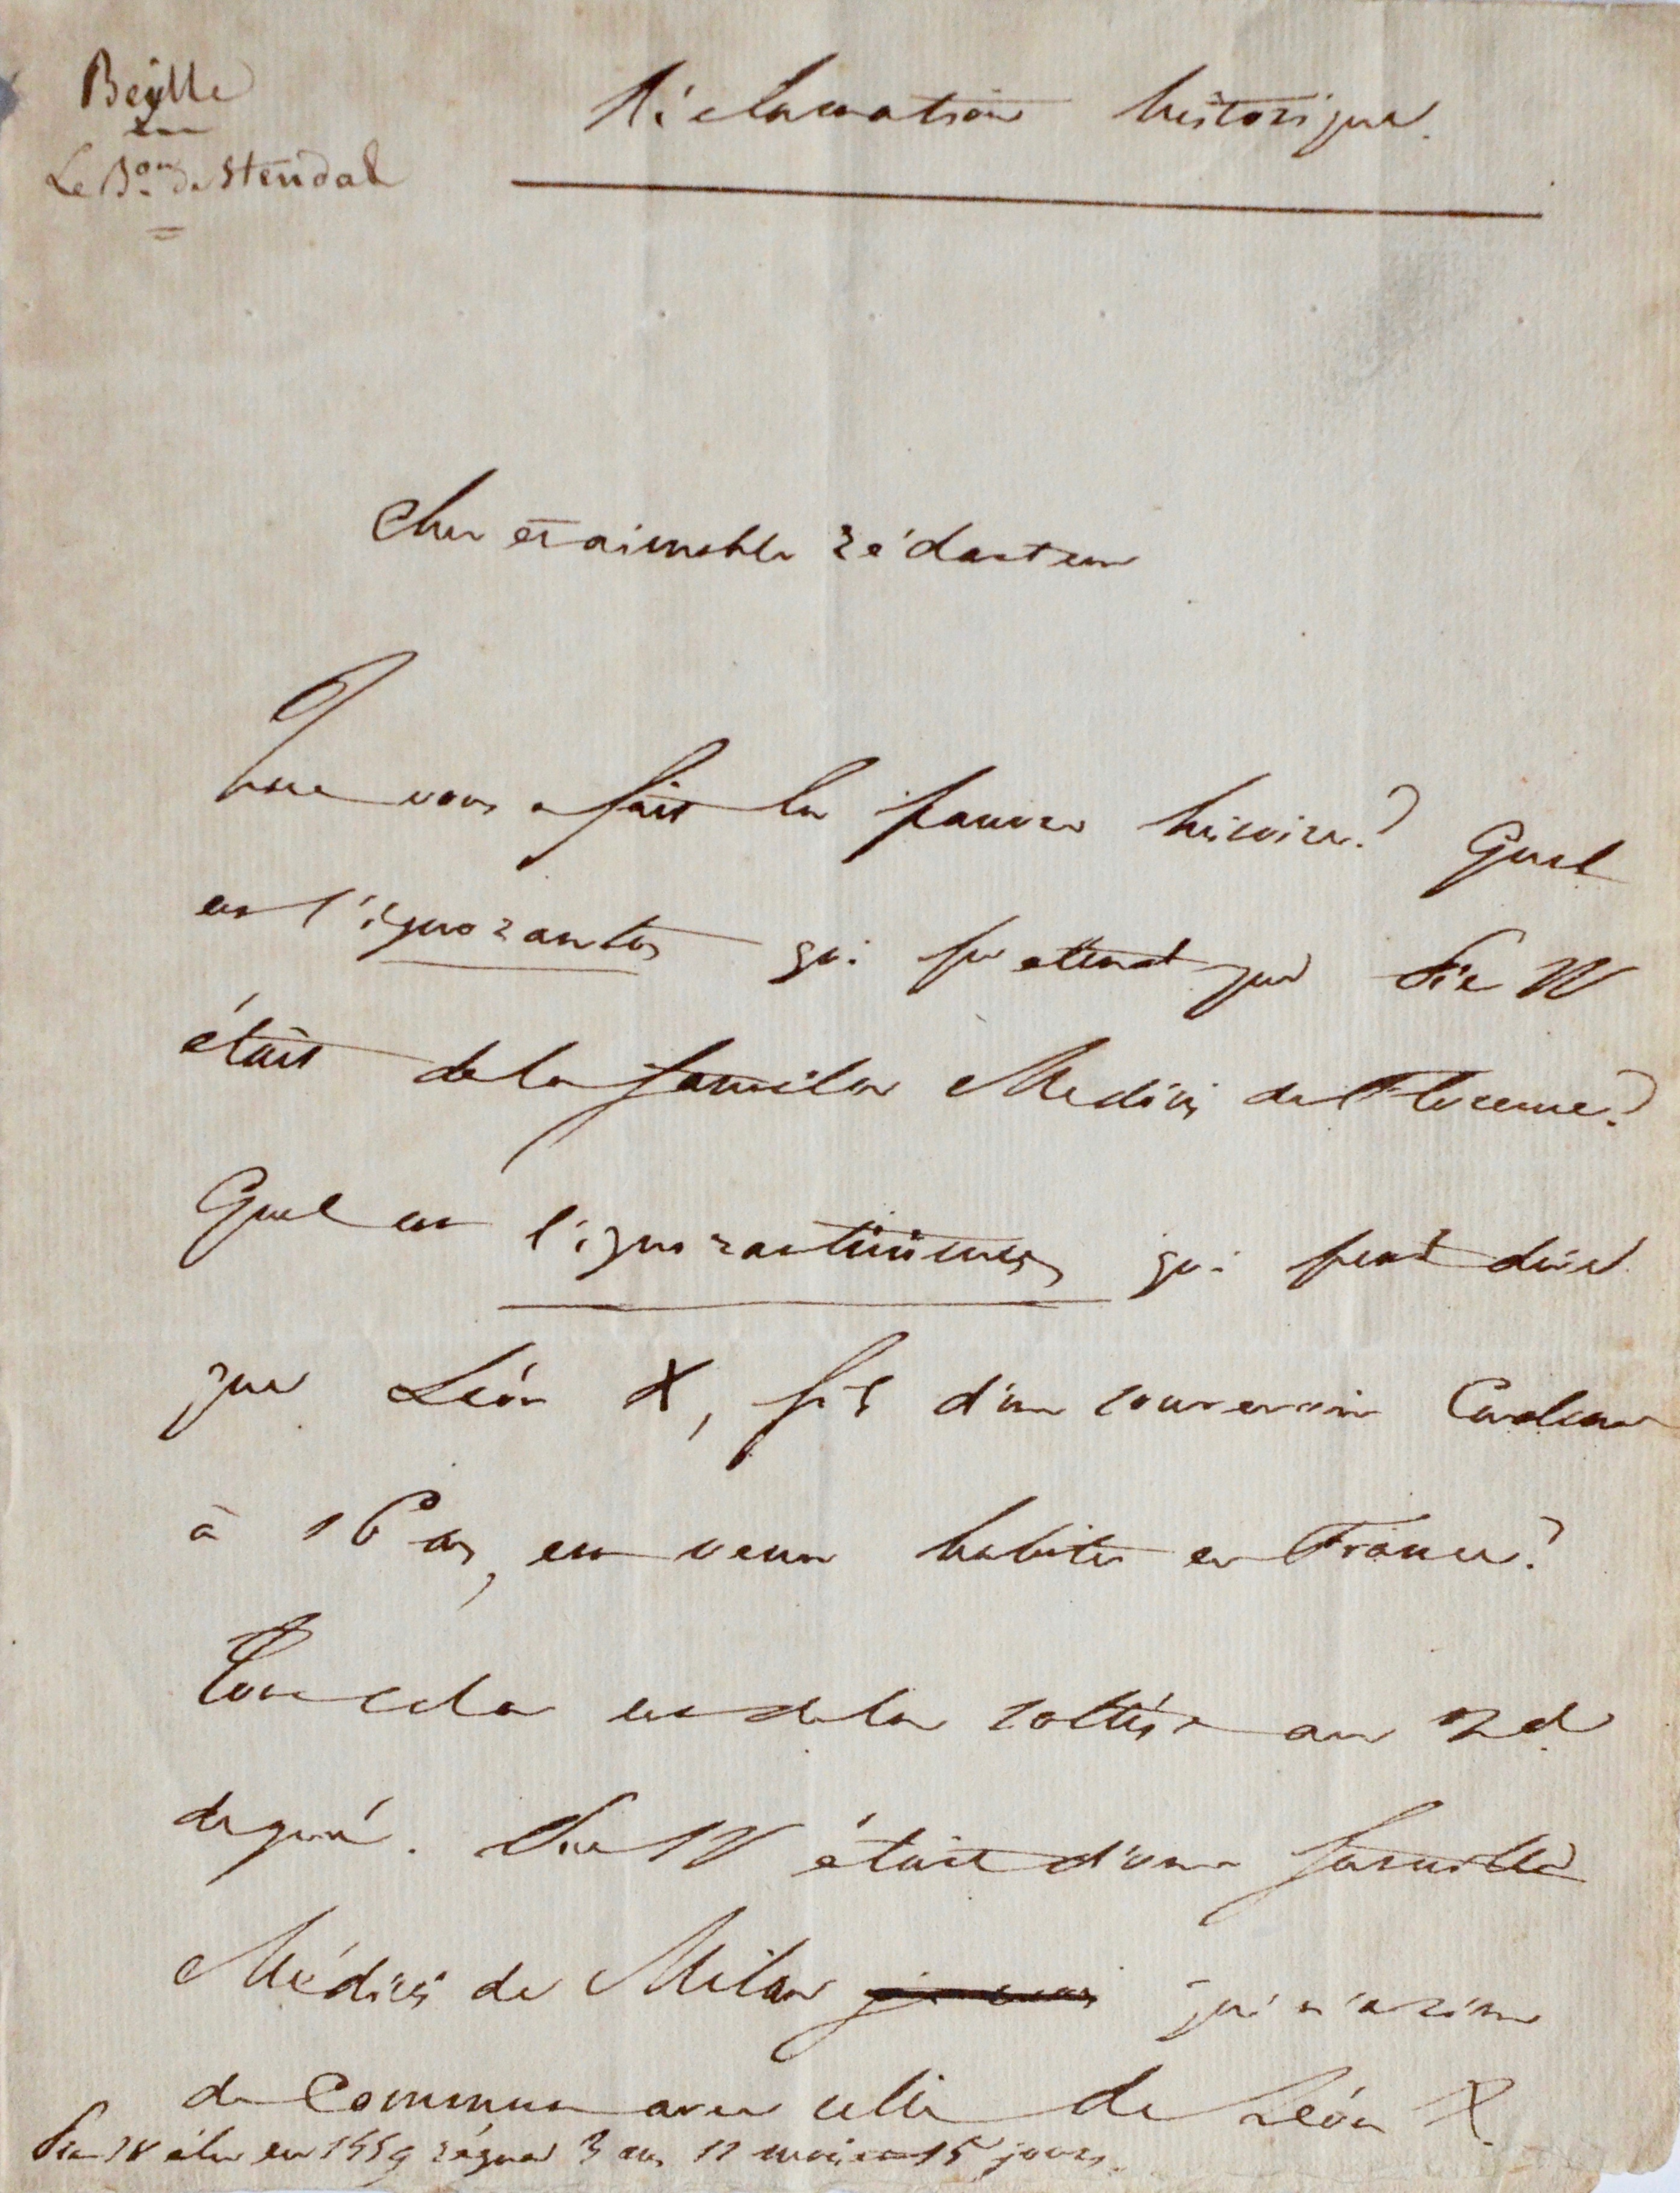 Beÿlle
Le Bon de Stendal
Réclamation historique.
Cher et aimable rédacteur
Que vous a fait la pauvre histoire? Quel
est l'ignorantus qui prettend que Pie IV
était de la famille Medicis de Florence?
Quel est l'ignorantissimus qui peut dire
que Léon X, fils d'un souverain Cardinal
à 16 ans, est venu habiter en France?
Tout cela est de la sottise au 2d
degré. Pie IV était d'une famille
Médicis de Milan qui n'a rien
de commun avec celle de Léon X.
Pie IV élu en 1559 régna 3 ans 11 mois et 15 jours.